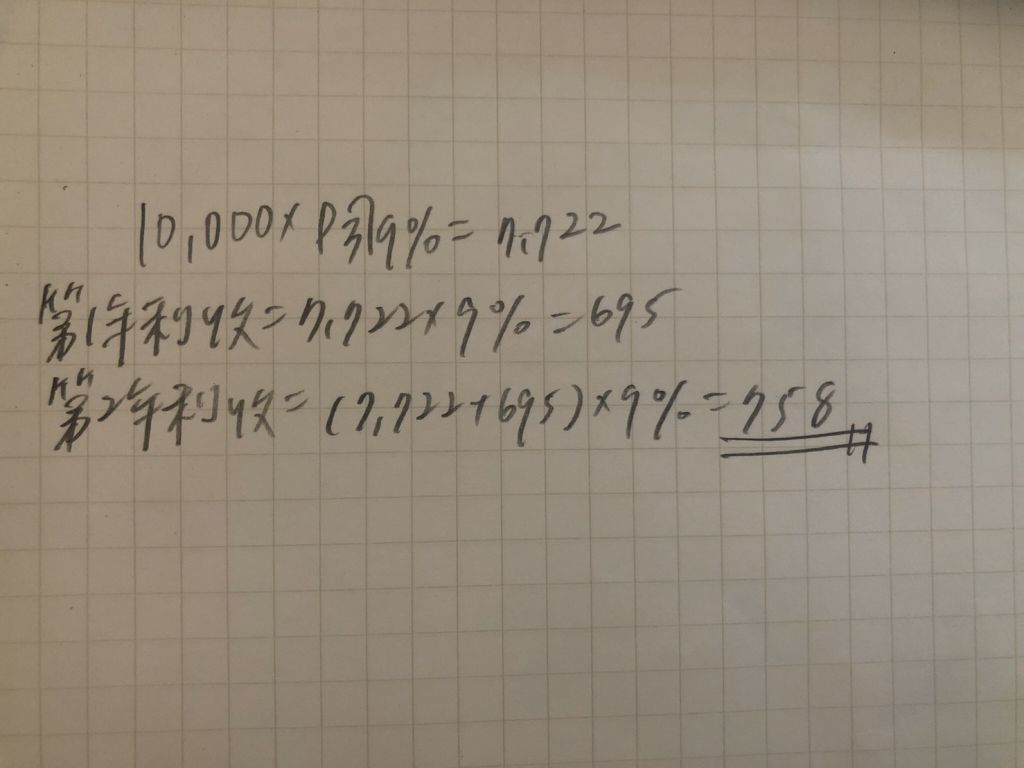 10,000×P3┐9%=7,722
第1年利收=7,722×9%=695
第2年利收=(7,722+695)×9%=758